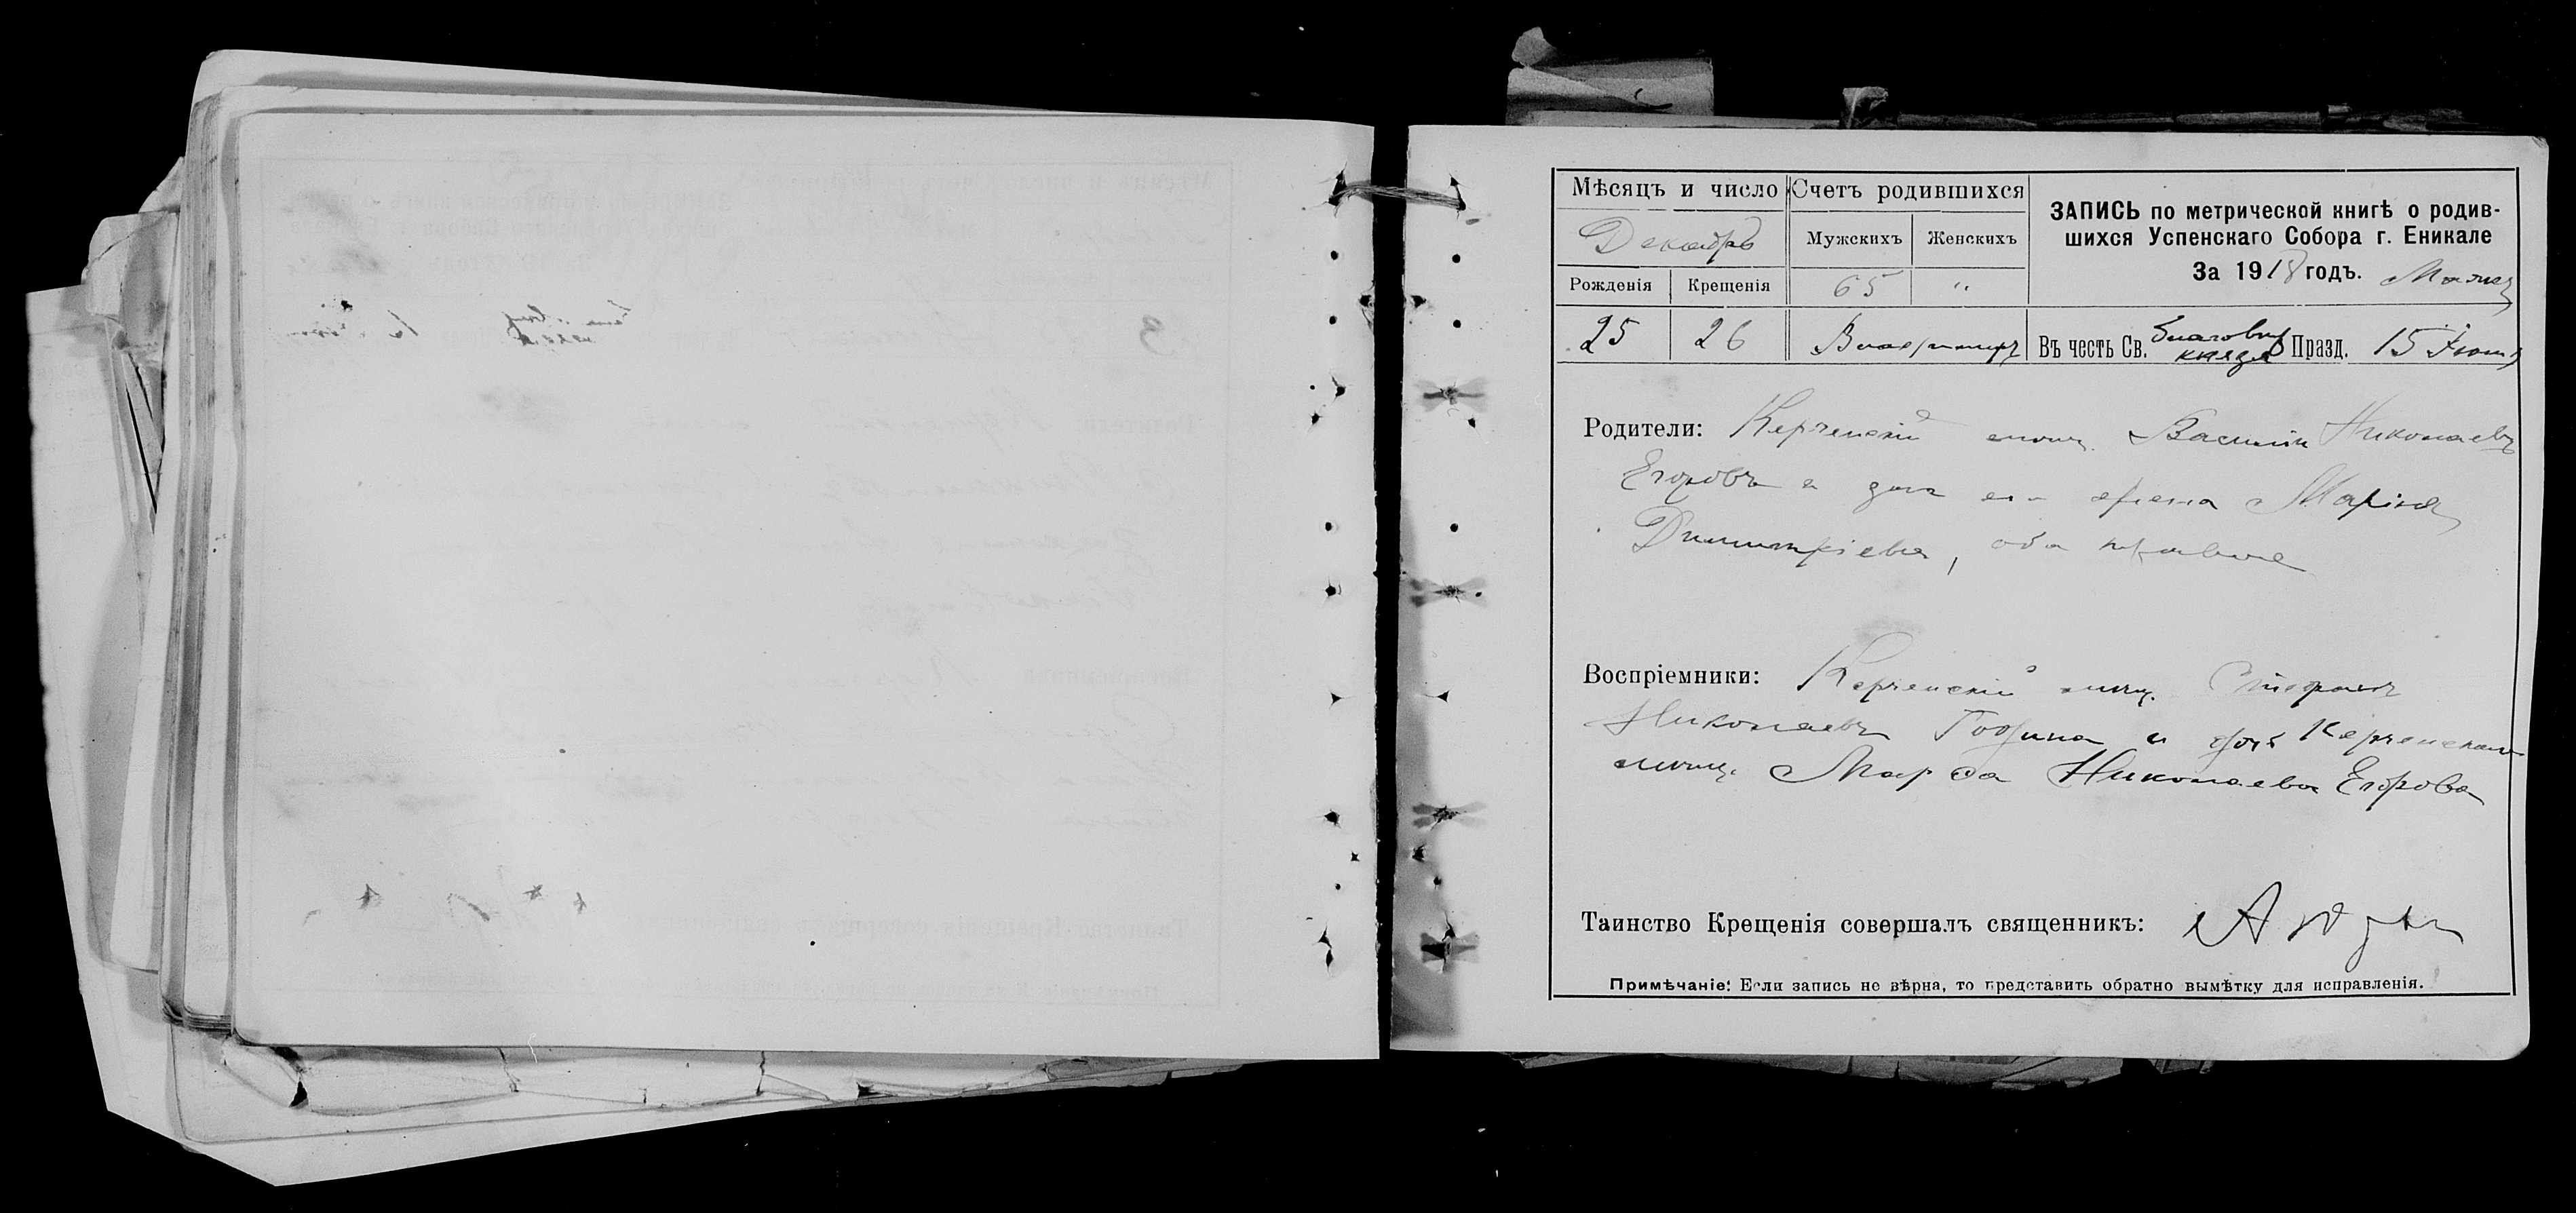 Мѣсяцъ и число
Счетъ родившихся
ЗАПИСЬ по метрической книгѣ о родив-
шихся Успенскаго Собора г. Еникале
За 1918 годъ.
Декабрь
Мужскихъ
Женскихъ
Рожденія
Крещенія
65
"
25
26
Владимиръ
Въ честь Св. благовѣр князя Празд. 15 Іюля
Родители: Керченскій мѣщ. Василій Николаевъ
Егоровъ и зак его жена Марія
Димитріева, оба правос
Воспріемники: Керченскій мѣщ. Стефанъ
Николаевъ и дочь Керченскаго
мѣщ. Марѳа Николаева Егорова
Таинство Крещенія совершалъ священникъ:
Примѣчаніе: Если запись не вѣрна, то представить обратно вымѣтку для исправленія.